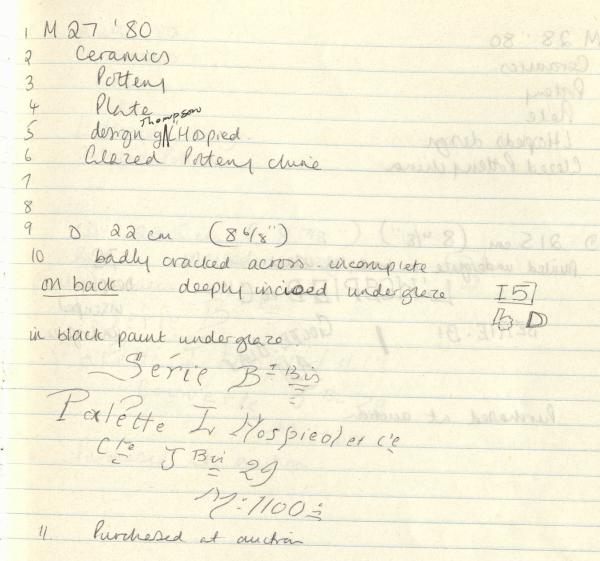 1 M 27 '80
2 Ceramics
3 Pottery
4 Plate
Thompson
5 design g L Hospied.
6 Glazed Pottery
7
8
9 D 22 cm (8 6/8")
10 badly cracked across. incomplete
on back deeply incised underglaze I5
D
in black paint underglaze
Série B Bis
Palette L Hospied et Cie
Cte J Bis 29
M: 1100
11 Purchased at auction